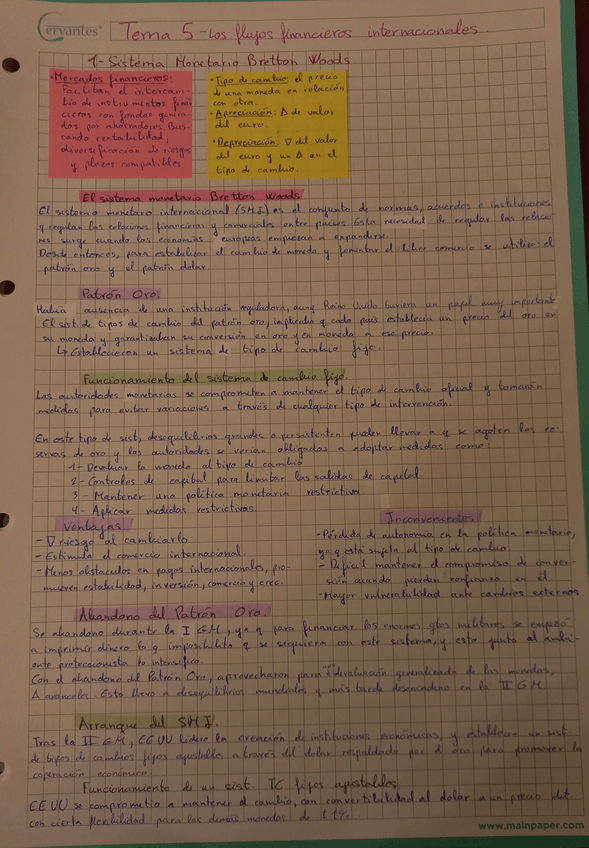 Cervantes®
Tema 5 - Los flujos financieros internacionales.
1- Sistema Monetario Bretton Woods
• Mercados financieros:
Facilitan el intercam-
bio de instrumentos finan
cieros con fondos genera-
dos por ahorradores bus-
cando rentabilidad,
diversificación de riesgos
y plazos compatibles
• Tipo de cambio: el precio
de una moneda en relación
con otra.
- Apreciación: Δ de valor
del euro.
• Depreciación: ∇ del valor
del euro y un Δ en el
tipo de cambio.
El sistema monetario Bretton Woods
El sistema monetario internacional (SMI) es el conjunto de normas, acuerdos e instituciones
q regulan las relaciones financieras y comerciales entre países. Esta necesidad de regular las relacio-
nes surge cuando las economías europeas empiezan a expandirse.
Desde entonces, para estabilizar el cambio de moneda y fomentar el libre comercio se utilizo: el
patrón oro y el patrón dolar.
Patrón Oro.
Había ausencia de una institución reguladora, aunq Reino Unido tuviera un papel muy importante
El sist. de tipos de cambio del patrón oro, implicaba q cada país establecía un precio del oro en
su moneda y garantizaban su conversión en oro y en moneda a ese precio.
↳ Establecieron un sistema de tipo de cambio fijo.
Funcionamiento del sistema de cambio fijo.
Las autoridades monetarias se comprometen a mantener el tipo de cambio oficial y tomarán
medidas para evitar variaciones a través de cualquier tipo de intervención.
En este tipo de sist, desequilibrios grandes o persistentes pueden llevar a q se agoten las re-
servas de oro y las autoridades se verían obligadas a adoptar medidas como:
1- Devaluar la moneda al tipo de cambio
2- Controles de capital para limitar las salidas de capital
3 - Mantener una política monetaria restrictiva
4- Aplicar medidas restrictivas.
Ventajas
- ∇ riesgo al cambiarlo
- Estimula el comercio internacional.
- Menos obstaculos en pagos internacionales, pro-
mueven estabilidad, inversión, comercio y crec.
Inconvenientes
- Pérdida de autonomía en la política monetaria,
ya q está sujeta al tipo de cambio.
- Difícil mantener el compromiso de conver-
sión cuando pierden confianza en él
- Mayor vulnerabilidad ante cambios externos.
Abandono del Patrón Oro.
Se abandono durante la I GM, ya q para financiar los enormes gtos militares se empezó
a imprimir dinero lo q imposibilita q se siguiera con este sistema, y esto junto al ambi-
ente proteccionista lo intensifico.
Con el abandono del Patrón Oro, aprovecharon para devaluación generalizada de las monedas,
Δ aranceles. Esto llevo a desequilibrios mundiales q más tarde desencadeno en la II GM.
Arranque del SMI.
Tras la II GM, EEUU lidero la creación de instituciones económicas, y establecen un sist.
de tipos de cambios fijos ajustables a través del dolar respaldado por el oro para promover la
coperación económica
Funcionamiento de un sist. TC fijos ajustables
EEUU se comprometio a mantener el cambio, con convertibilidad al dolar a un precio det
con cierta flexibilidad para las demás monedas de ±1%.
www.mainpaper.com